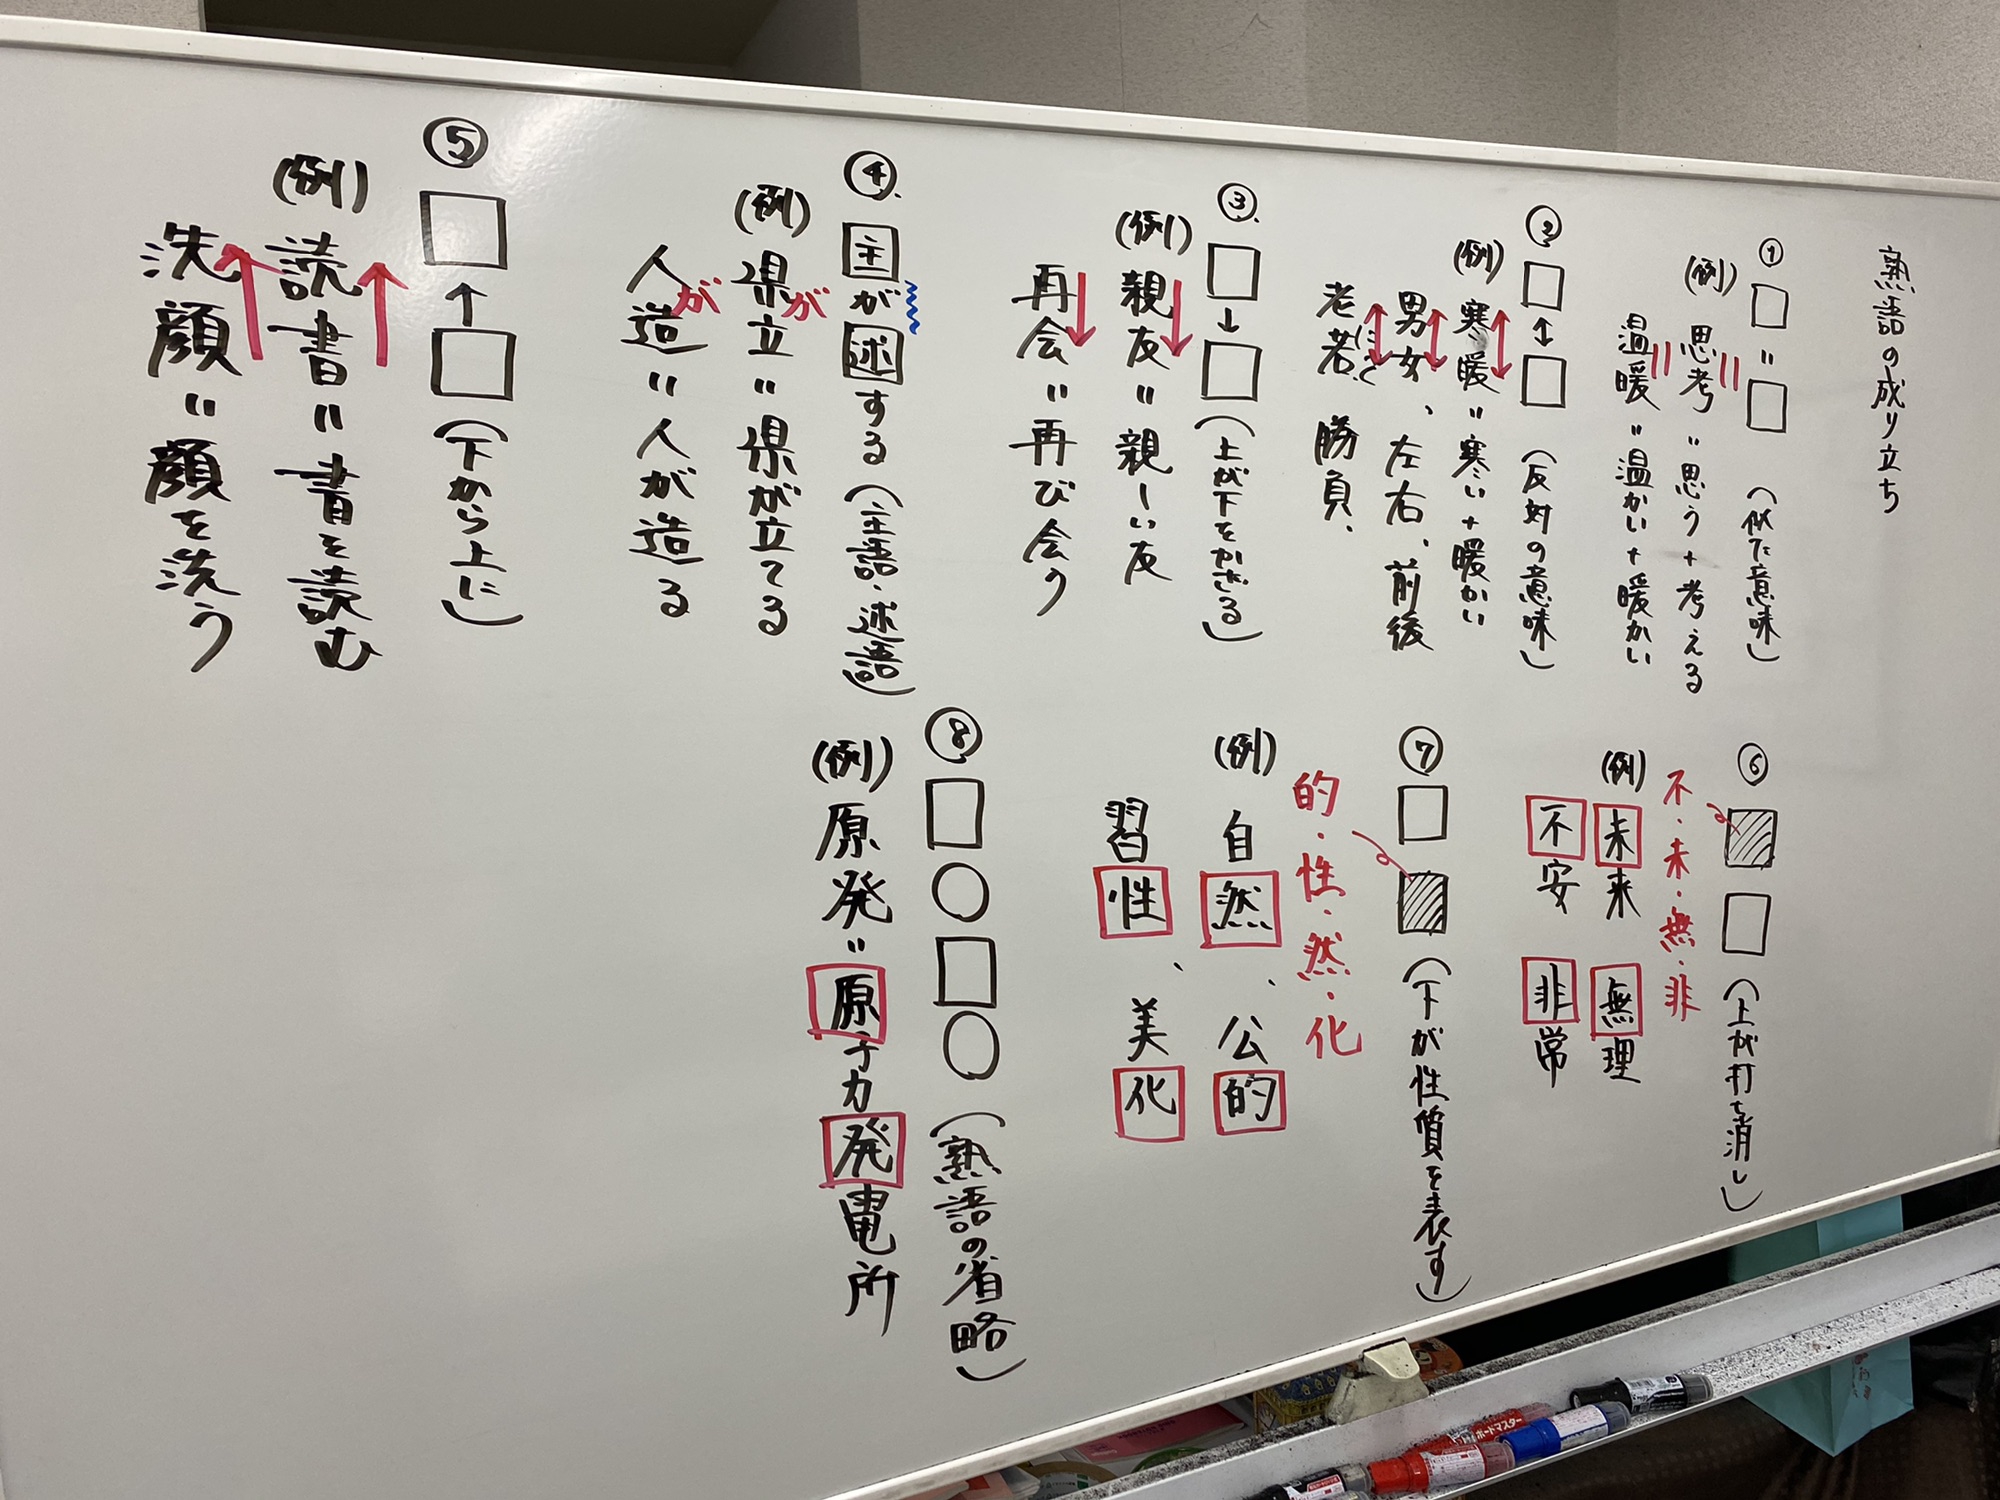 熟語の成り立ち
① □＝□（似た意味）
(例) 思考＝思う+考える
温暖＝温かい+暖かい
② □↔□（反対の意味）
(例) 寒暖＝寒い+暖かい
男女、左右、前後
老若、勝負、
③. □→□（上が下をかざる）
(例) 親友＝親しい友
再会＝再び会う
④. 主が述する（主語・述語）
(例) 県が立＝県が立てる
人が造＝人が造る
⑤ □←□（下から上に）
(例) 読書＝書を読む
洗顔＝顔を洗う
⑥ □□（上が打ち消し）
不・未・無・非
(例) 未来 無理
不安 非常
⑦ □□（下が性質を表す）
的・性・然・化
(例) 自然、公的
習性、美化
⑧ □○□○（熟語の省略）
(例) 原発＝原子力発電所
ボードマスター